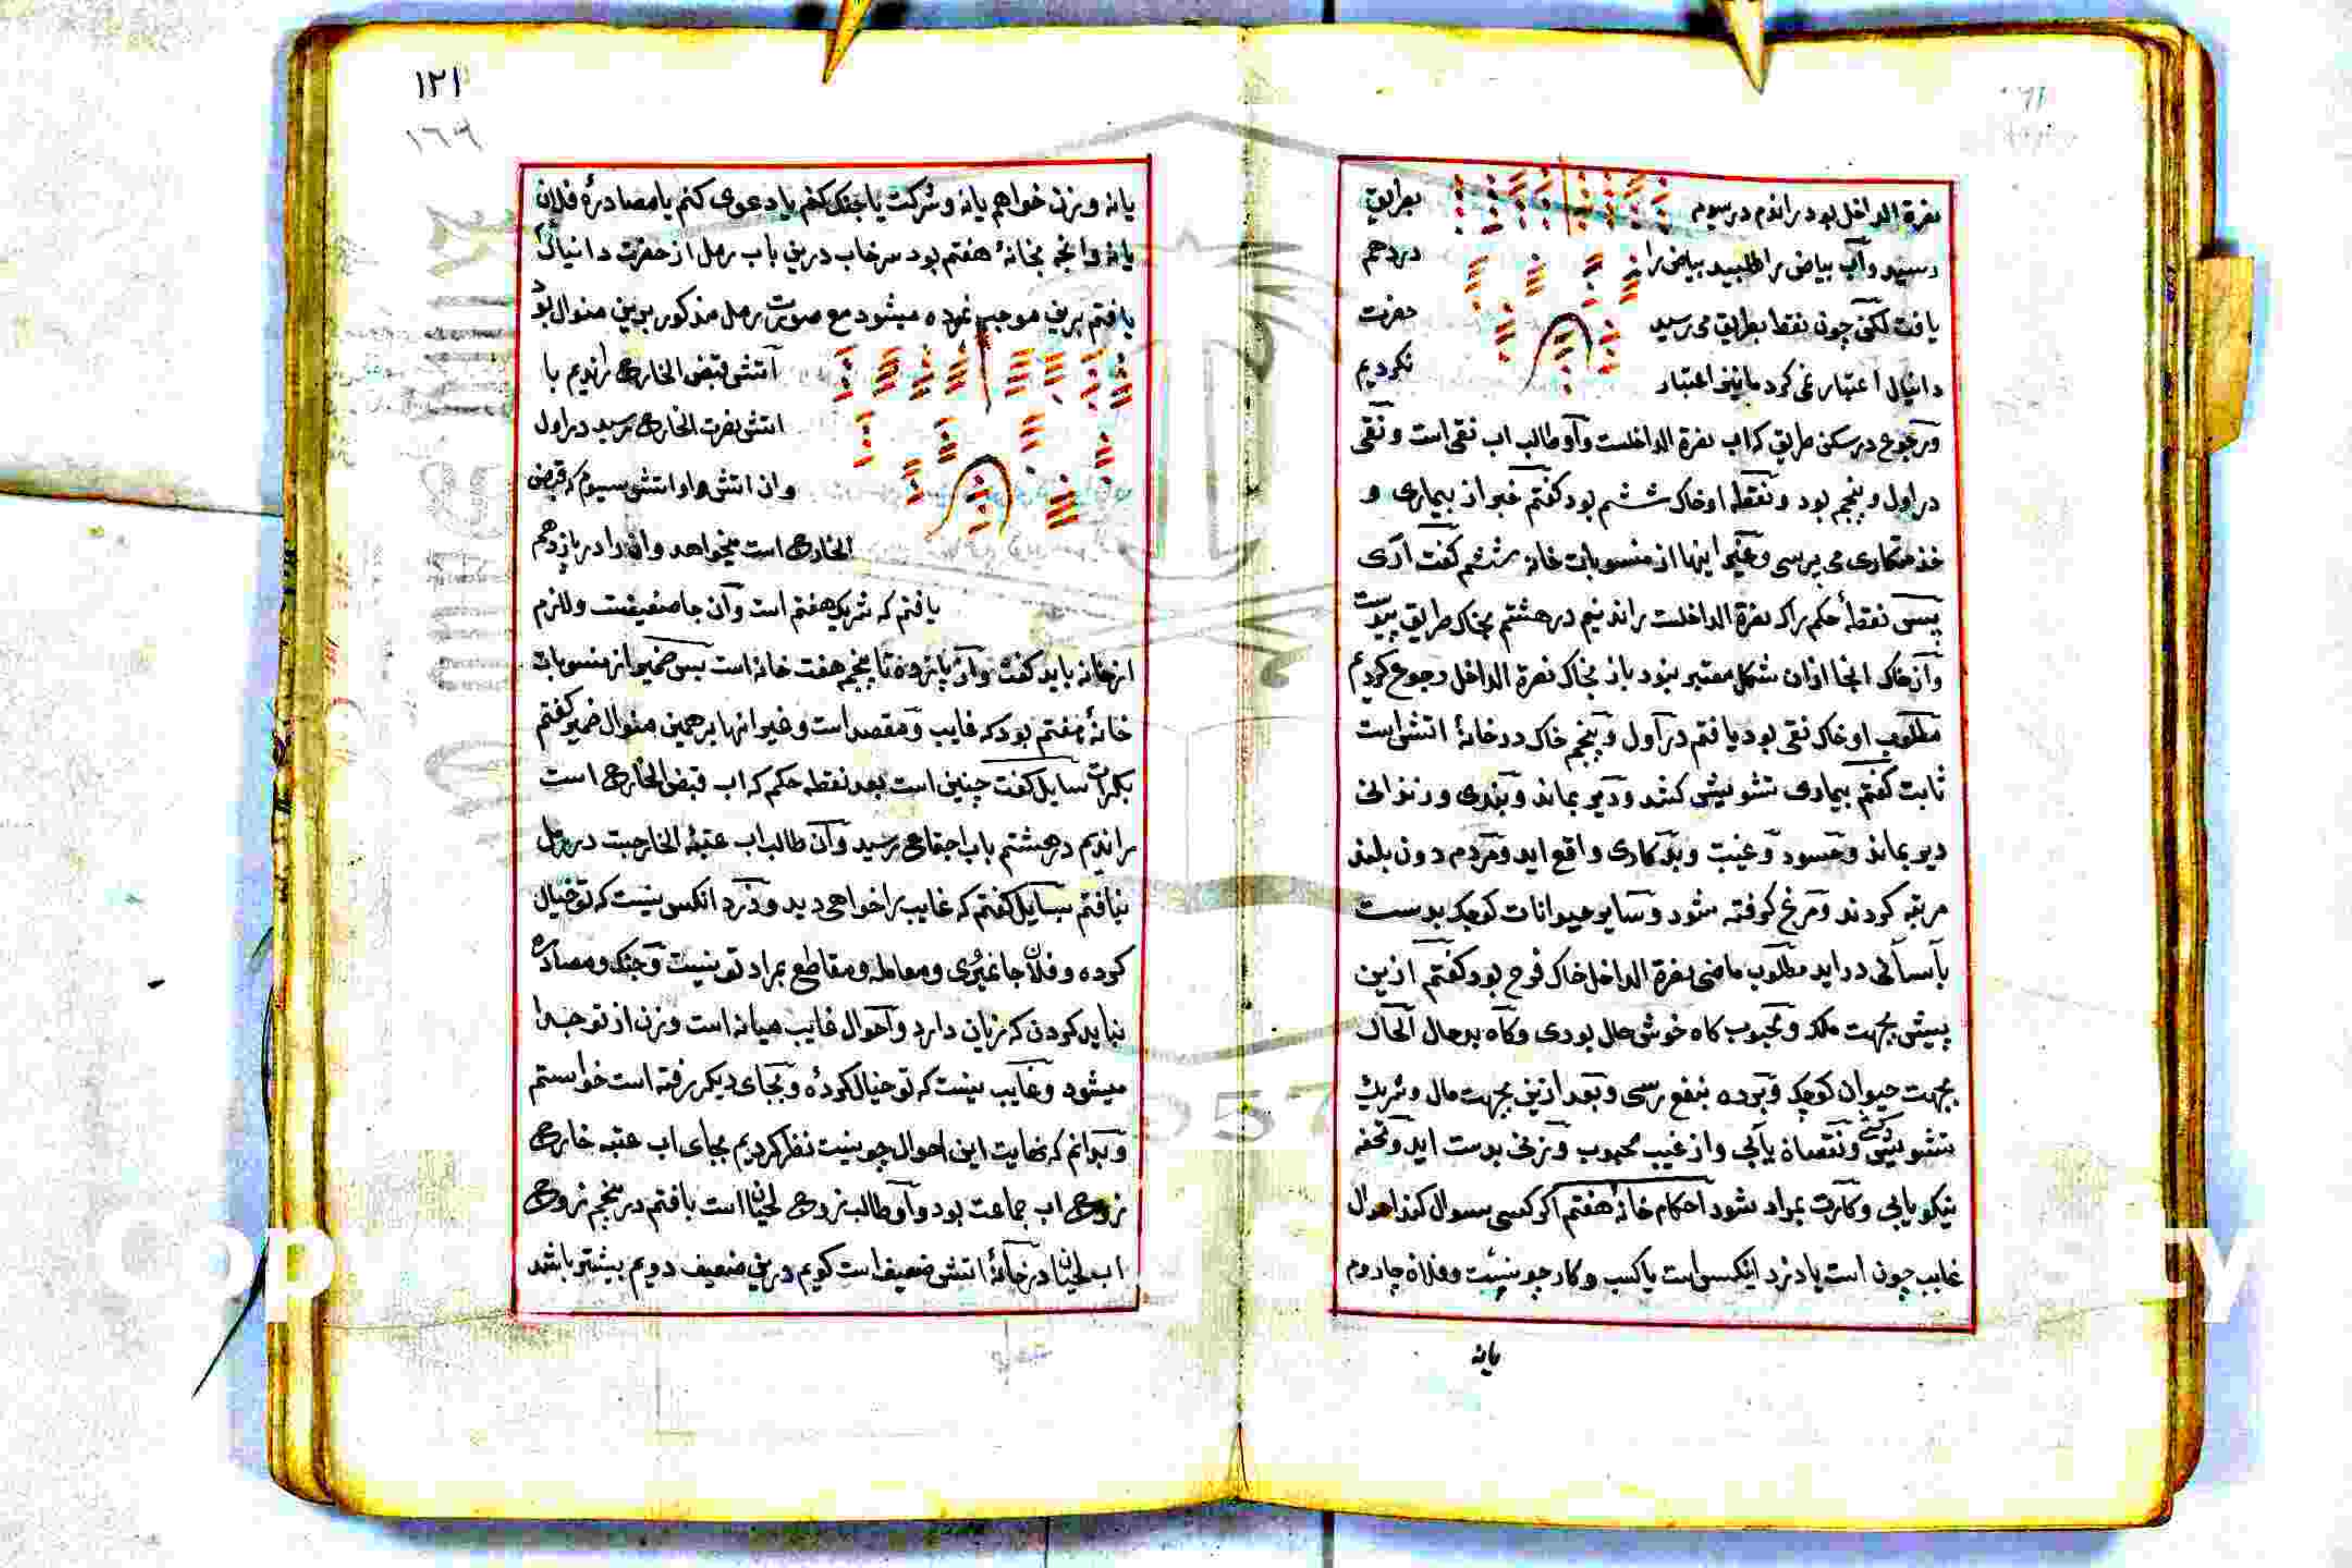 نصرة الداخل بود راندم در سوم بطریق
رسید وآب بیاض را طلبید بیاض را در دهم
یافت لکن چون نقط بطریق می رسید حضرت
دانیال اعتبار نمی کرد ما نیز اعتبار نکردیم
در اول و پنجم بود ونقطه او خاک ششم بود کفتم خبر از بیماری و
خذمتکاری می پرسی وغیر اینها از منسوبات خانه ششم کفت آری
پس نقطهٔ حکم را که نصرة الداخلست راندیم در هشتم بخاک طریق پیوست
وآن خاک انجا ازان شکل معتبر نبود باز بخاک نصرة الداخل رجوع کردیم
مطلوب او خاک نقی بود یافتم در اول وپنجم خاک در خانهٔ اتشی است
ثابت کفتم بیماری تشویش کشد ودیر بماند وبندی وزندانی
دیر بماند وحسود وغیبت وبدکاری واقع اید ومردم دون بلند
مرتبه کردند ومرغ کرفته شود وسایر حیوانات کوچک بدست
بآسانی دراید مطلوب ماضی نصرة الداخل خاک فرح بود کفتم ازین
پیش بجهت ملک ومحبوب کاه خوش حال بودی وکاه بدحال الحال
بجهت حیوان کوچک وبرده بنفع رسی وبعد ازین بجهت مال وشریک
تشویش کشی ونقصان یابی واز غیب محبوب وزنی بدست اید وتحفه
نیکو یابی وکارت بمراد شود احکام خانهٔ هفتم اکر کسی سوال کند احوال
غایب چون است یا دزد اینکس است یا کسب وکار چونیست وفلان جا روم
یانه
١٢١
١٦٩
یانه وزن خواهم یانه وشرکت یا جنک کنم یا دعوی کنم یا مصادرهٔ فلان
یانه وانچه بخانهٔ هفتم بود سرخاب درین باب رمل از حضرت دانیال
یافتم برین موجب نموده میشود مع صورت رمل مذکور برین منوال بود
آتش قبض الخارج راندیم با
اتش نصرت الخارج رسید در اول
وان اتش واو اتش سیوم که قبض
الخارج است میخواهد وانرا در یازدهم
یافتم که شریک هفتم است وآن جا ضعیفست
ازخانه باید کفت واز یازده تا پنجم هفت خانه است پس ضمیر از منسوبات
خانهٔ هفتم بود که غایب ومقصد است وغیر انها برهمین منوال ضمیر کفتم
سایل کفت چنین است بعد نقطه حکم که اب قبض الخارج است
راندیم در هشتم باب اجتماع رسید وآن طالب اب عتبة الخارجست در رمل
نیافتم بسایل کفتم که غایب را خواهی دید ودزد انکس نیست که تو خیال
کرده وفلان جا نمیروی ومعامله ومقاطع بمراد تو نیست وجنک ومصادره
نباید کردن که زیان دارد واحوال غایب میانه است وزن از تو جدا
میشود وغایب نیست که تو خیال کردهٔ وبجای دیکر رفته است خواستم
وبدانم که نهایت این احوال چونیست نظر کردیم بجای اب عتبه خارج
اب جماعت بود واو طالب اب لحیان است یافتم در پنجم
اب لحیان در خانهٔ اتش ضعیف است کویم درین ضعیف دویم بیشتر باشد